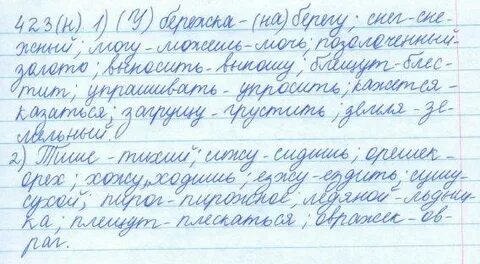 423(н) 1) (У) бережка - (на) берегу; снег - сне-
жный; могу - можешь - мочь; позолоченный -
золото; выносить - выношу; блещут - блес-
тит; упрашивать - упросить; кажется -
казаться; загрущу - грустить; земля - зе-
мельный.
2) Тише - тихий; сижу - сидишь; орешек -
орех; хожу, ходишь; езжу - ездить; сушу -
сухой; пирог - пирожное, ледяной - льдин-
ка; плещут - плескаться; овражек - ов-
раг.